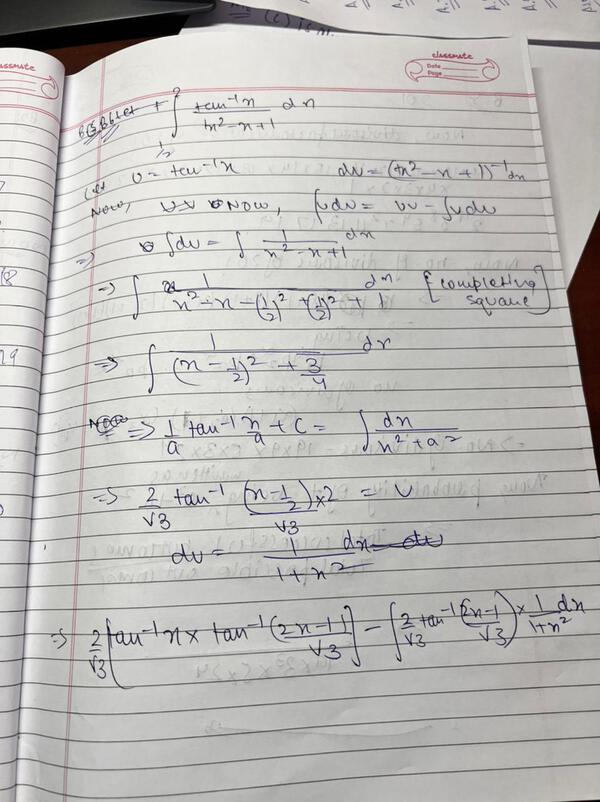 classmate
Date
Page
∫ 1/2 2 tan⁻¹x / x²-x+1 dx
Let U = tan⁻¹x dv = (x²-x+1)⁻¹dx
Now, Now, ∫udv = uv - ∫vdu
⇒ ∫dv = ∫ 1/x²-x+1 dx
⇒ ∫ 1/x²-x-(1/2)²+(1/2)²+1 dx [completing square]
⇒ ∫ 1/(x-1/2)²+3/4 dx
⇒ 1/a tan⁻¹ x/a + C = ∫ dx/x²+a²
⇒ 2/√3 tan⁻¹ (x-1/2)×2/√3 = V
du = 1/1+x² dx
⇒ 2/√3 [tan⁻¹x × tan⁻¹(2x-1/√3)] - ∫ 2/√3 tan⁻¹(2x-1/√3) × 1/1+x² dx